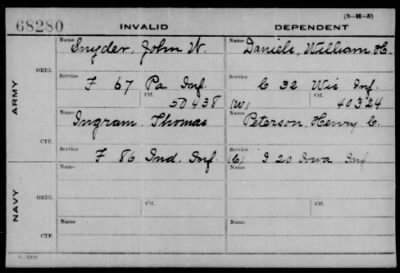 (3-H-5)
68280 INVALID DEPENDENT
ARMY
ORIG.
Name Snyder, John W. Name Daniels, William H.
Service F 67 Pa Inf. Service C 32 Wis Inf.
Ctf. 50438 (W) Ctf. 40324
CTF.
Name Ingram, Thomas Name Peterson, Henry C.
F 86 Ind. Inf. (C) I 20 Iowa Inf.
NAVY
ORIG.
Name Name
Service Ctf. Service Ctf.
CTF.
Name Name